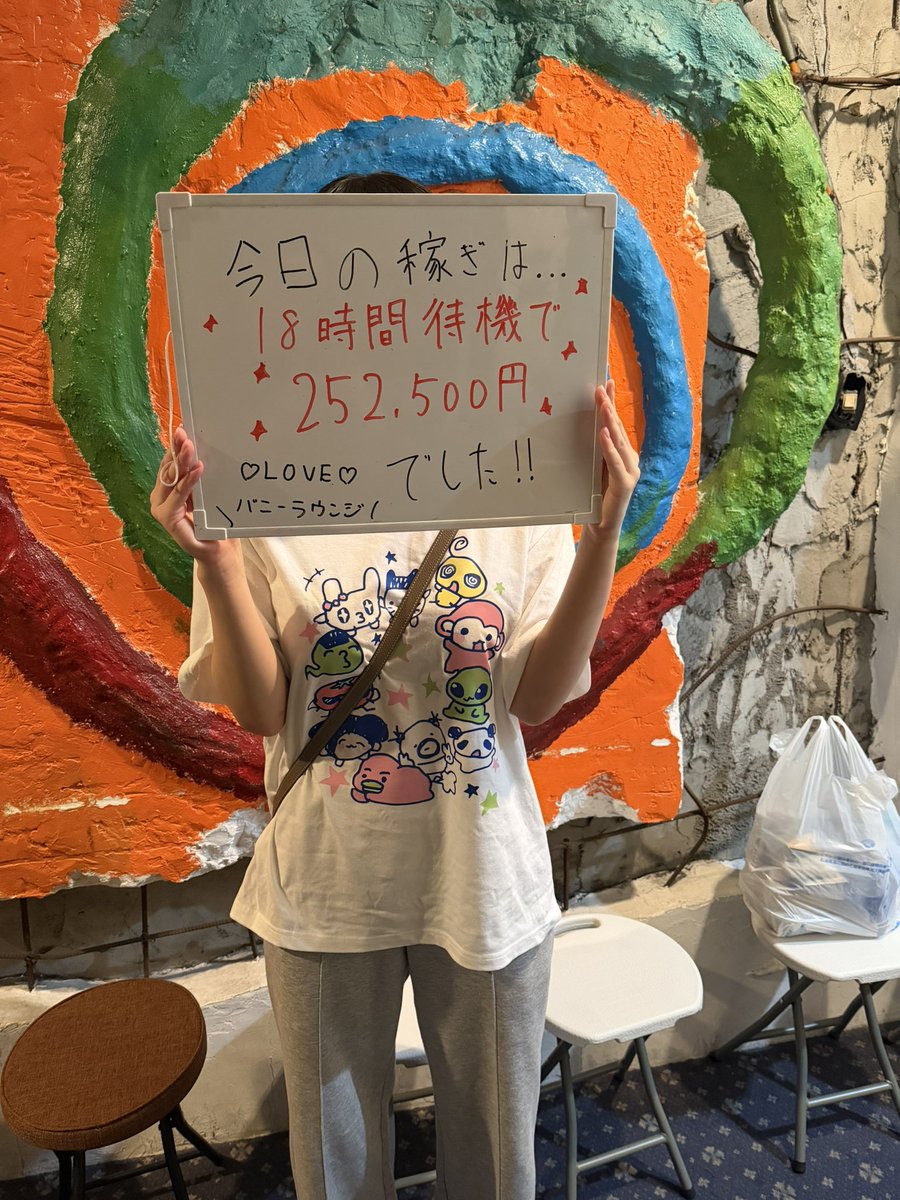 今日の稼ぎは...
18時間待機で
252.500円
♡LOVE♡
\バニーラウンジ/
でした!!